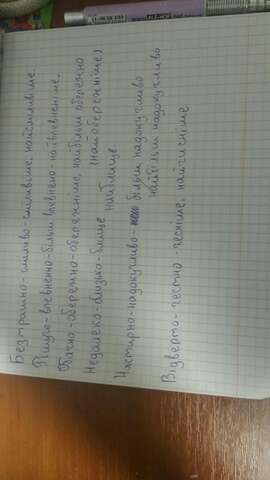 Безстрашно-сміливо-сміливіше, найсміливіше.
Рішуче-впевненно-більш впевнено-найвпевненіше.
Обачно-обережно-обережніше, найбільш обережно
(найобережніше)
Недалеко-близько-ближче найближче
Настирно-надокучливо- більш надокучливо
найбільш надокучливо
Відверто-чесно-чесніше, найчесніше